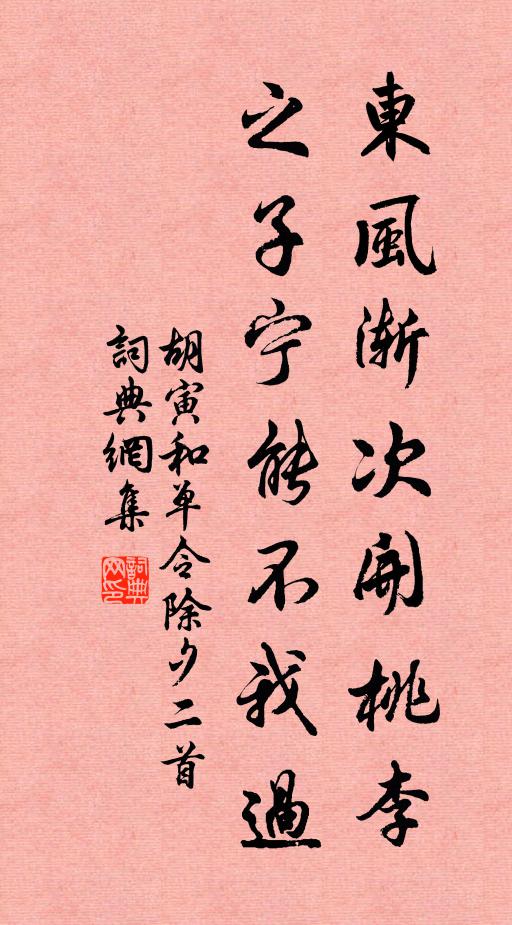 東風漸次開桃李
之子宁能不我過
胡寅和单令除夕二首
詞典網集
詞典网印